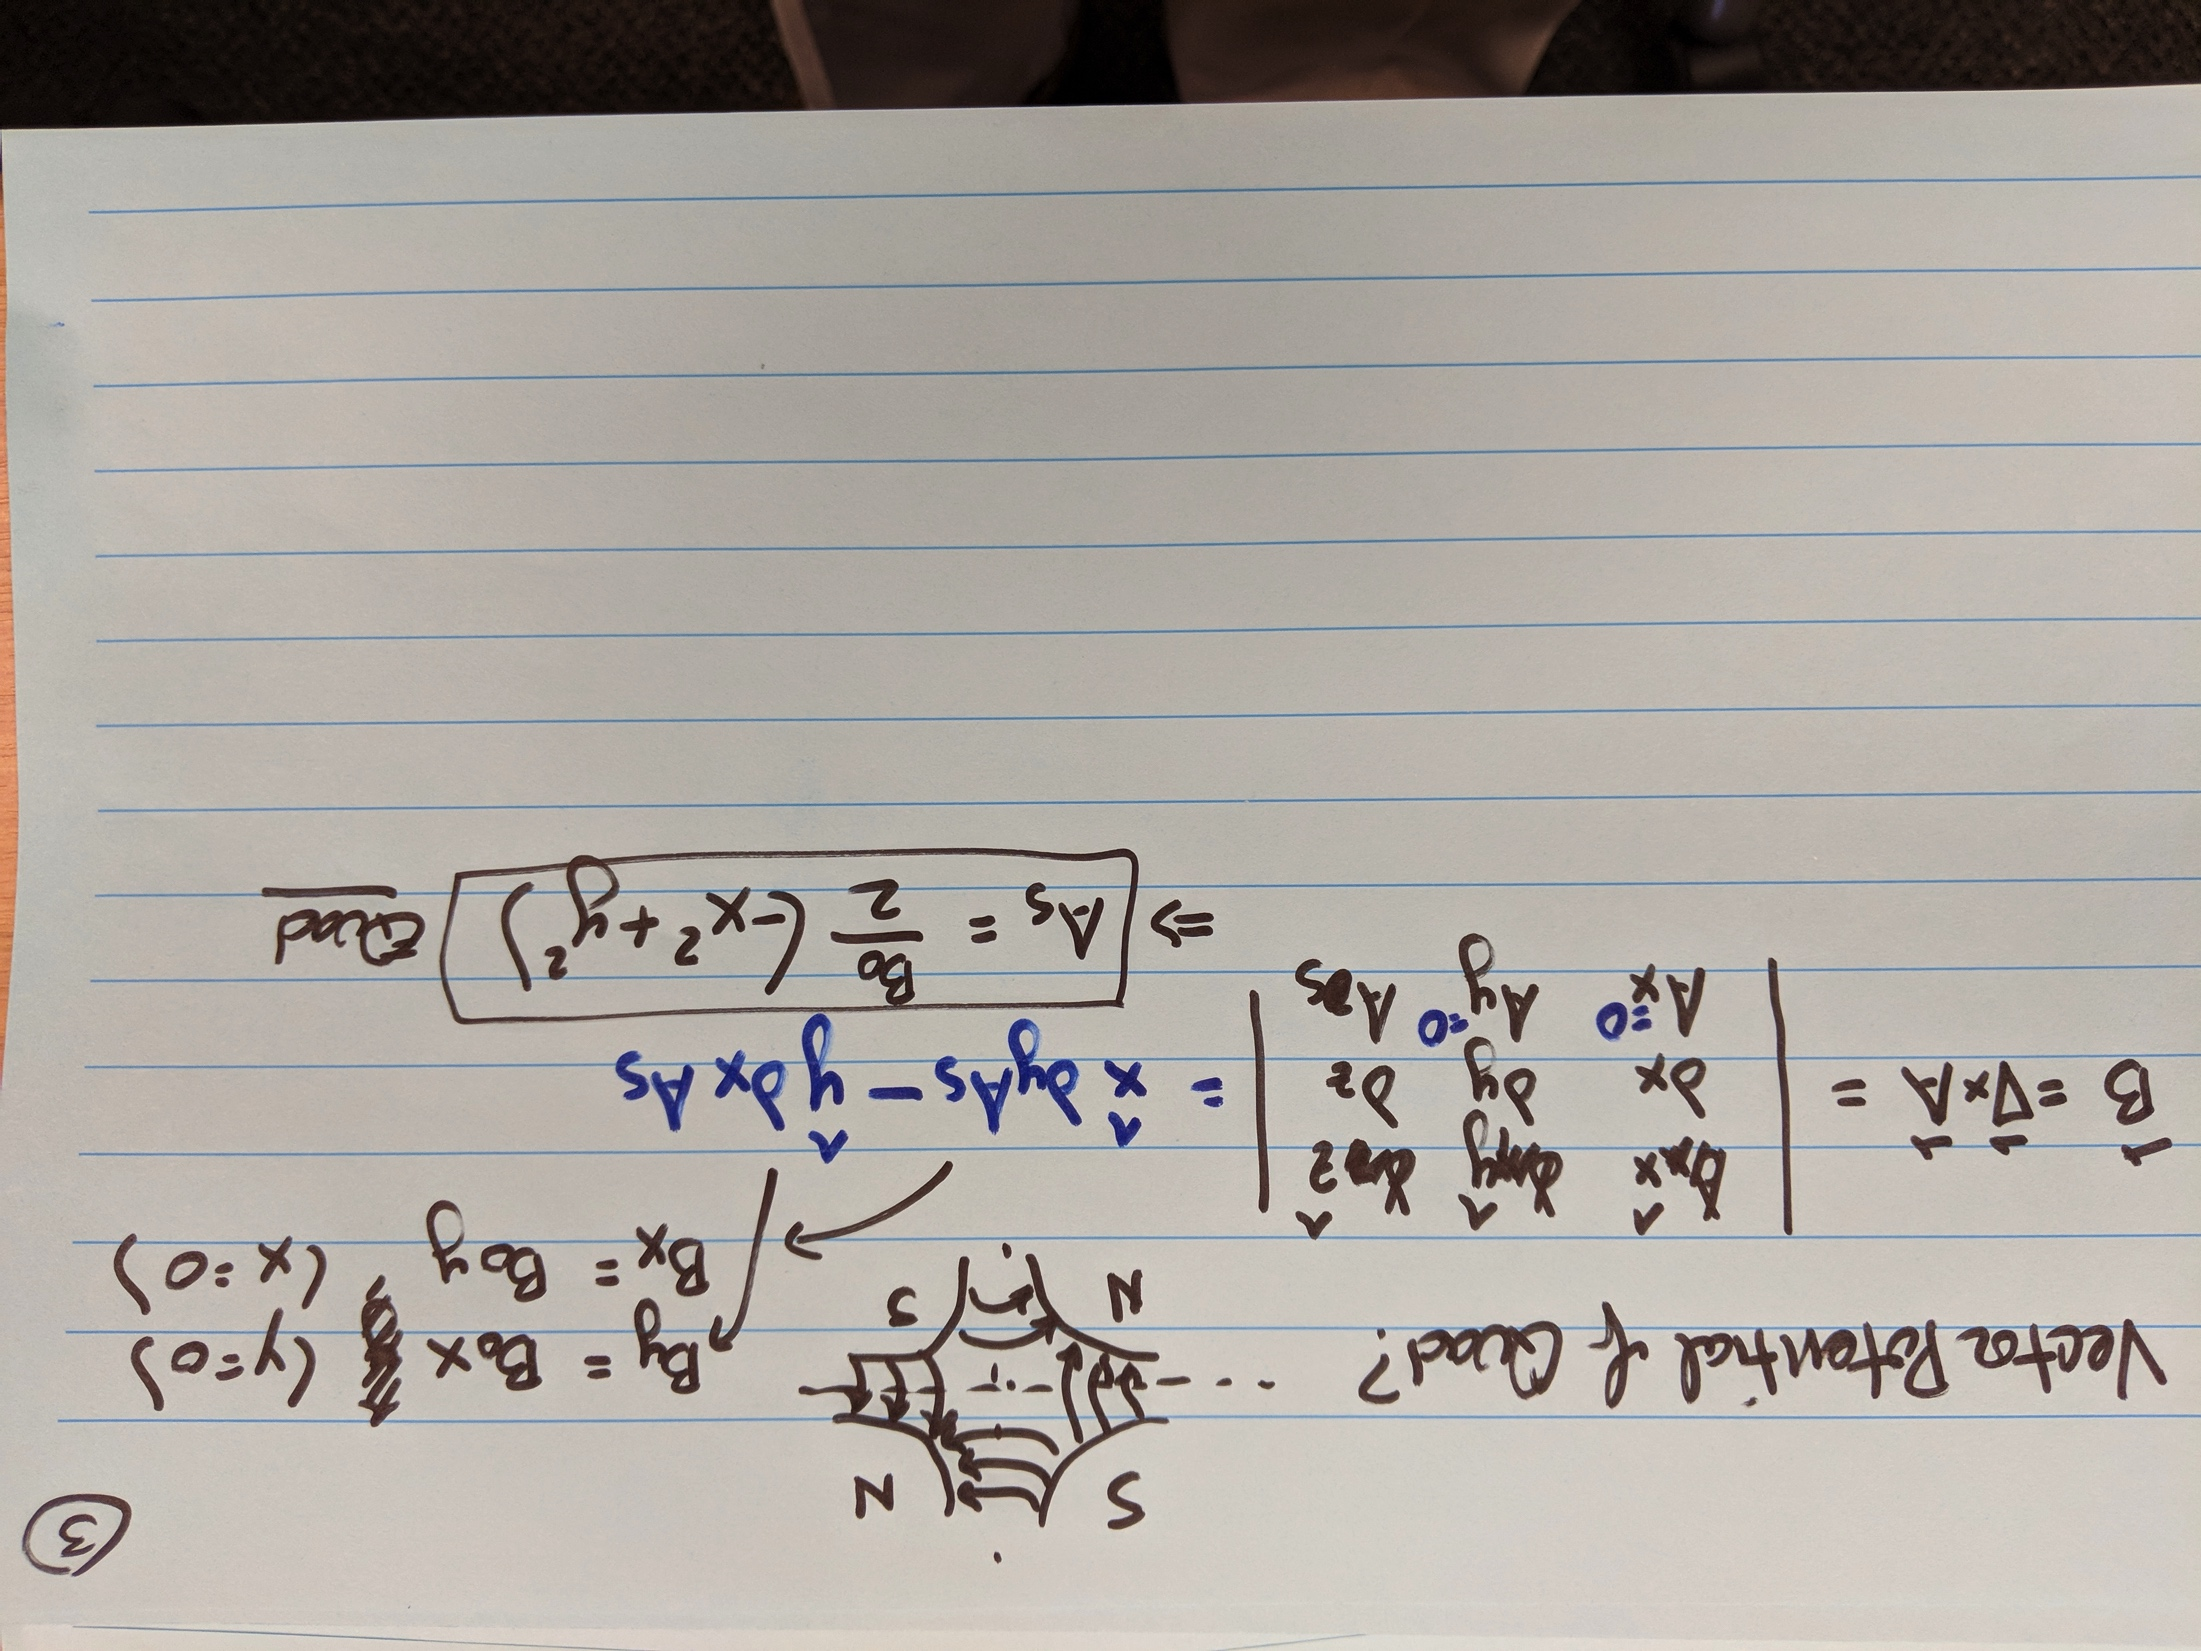 ③
S N
Vector Potential of Quad? N S
By = B₀x (y=0)
Bx = B₀y, (x=0)
B⃗ = ∇⃗×A⃗ = | x̂ ŷ ẑ |
| ∂x ∂y ∂z | = x̂ ∂yAs − ŷ ∂xAs
| Ax=0 Ay=0 As |
⇒ As = B₀/2 (−x² + y²) Quad